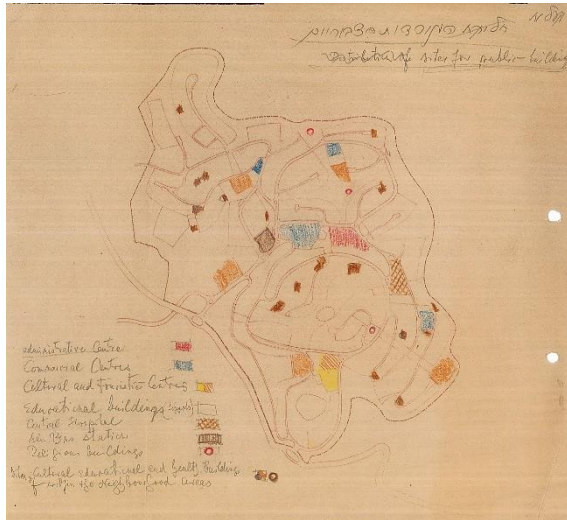 חלוקת המוסדות הציבוריים
Distribution of sites for public building
administrative Centre
Commercial Centres
Cultural and Centres
Educational buildings
Central Hospital
Station
Religious buildings
Cultural educational and health Buildings
within the Neighbourhood Areas